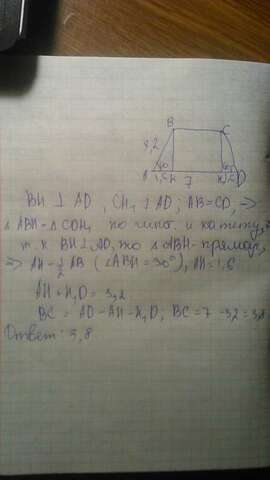 B
C
3,2
A 1,6 H 7 H₁ D
BH ⊥ AD , CH₁ ⊥ AD ; AB=CD, =>
△ABH=△CDH₁ по гипот. и катету,
т.к BH⊥AD, то △ABH-прямоуг,
=> AH=½AB (∠ABH=30°), AH=1,6
AH+H₁D=3,2
BC = AD-AH-H₁D; BC=7-3,2=3,8
Ответ: 3,8